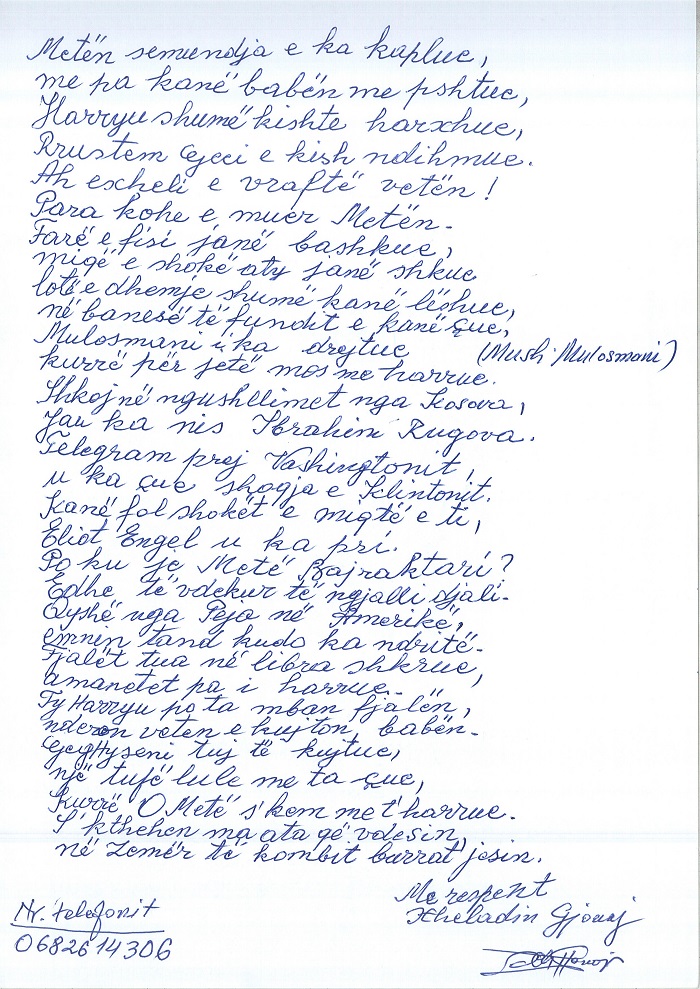 Metën semundja e ka kapluc,
me pa kanë babën me pshtuc,
Harryu shumë kishte harxhuc,
Rrustem Gjeci e kish ndihmuc.
Ah exheli e vraftë vetën!
Para kohe e muer Metën.
Farë e fisi janë bashkuc,
miqë e shokë aty janë shkuc
lotë e dhemje shumë kanë lëshuc,
në banesë të fundit e kanë çuc,
Mulosmani i ka drejtuc (Mush Mulosmani)
kurrë për jetë mos me harruc.
Shkojnë ngushllimet nga Kosova,
Jau ka nis Ibrahim Rugova.
Telegram prej Vashingtonit,
u ka çuc shoqja e Klintonit.
Kanë fol shokët e miqtë e ti,
Eliot Engel u ka pri.
Po ku je Metë Bajraktari?
Edhe të vdekur të ngjalli djali.
Qyshë nga Peja në Amerikë,
emnin tand kudo ka ndritë.
Fjalët tua në libra shkruc,
amanetet pa i harruc.
Ty Harryu po ta mban fjalën,
nderon veten e kujton babën.
GjegHyseni tuj të kujtuc,
një tufë lule me ta çuc,
Kurrë O Metë s'kem me t'harruc.
S'kthehen ma ata që vdesin,
në Zemër të kombit burrat jesin.
Me respekt
Xheladin Gjonaj
Nr. telefonit
0682614306